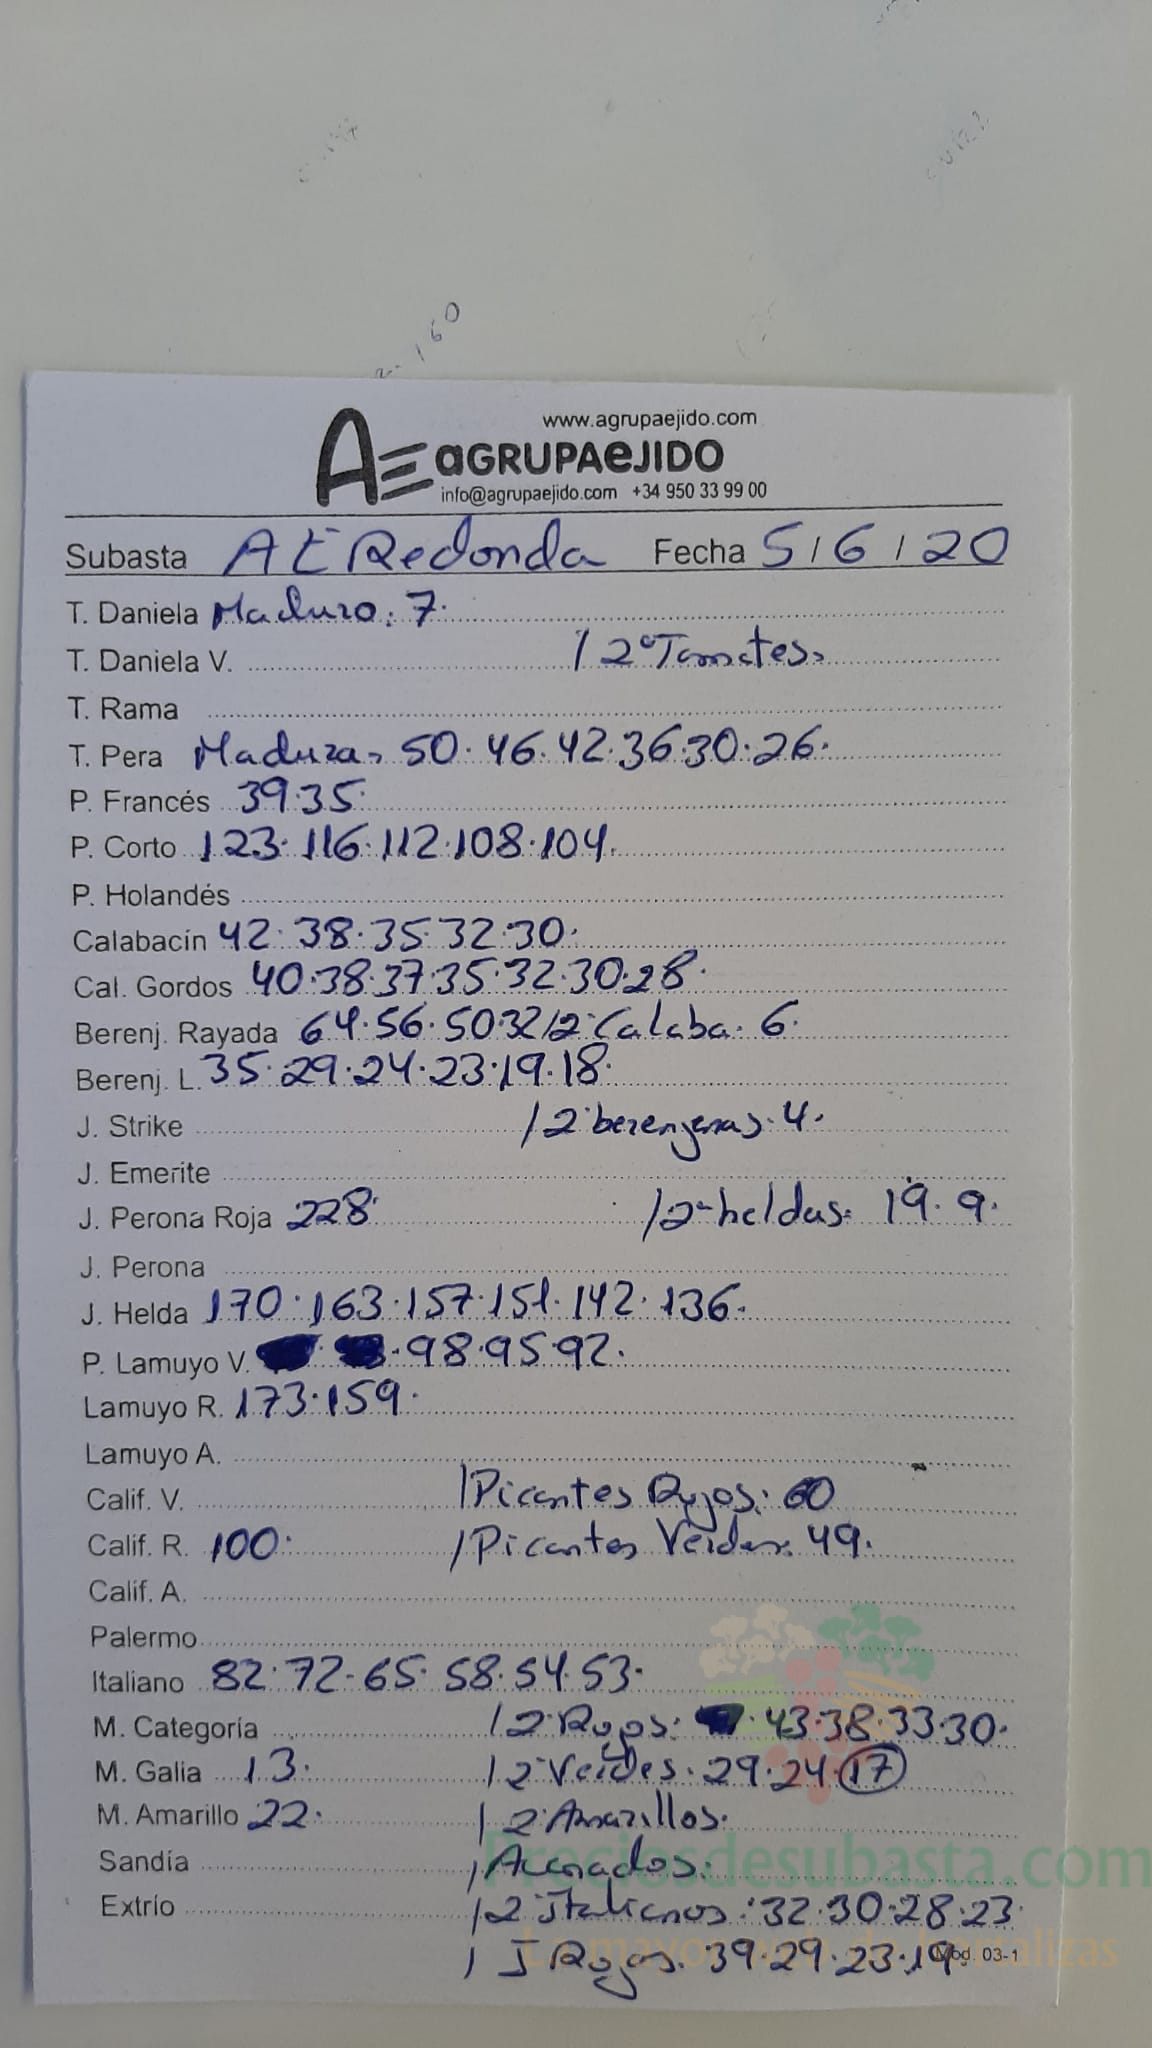 160
www.agrupaejido.com
AE aGRUPAeJIDO
info@agrupaejido.com +34 950 33 99 00
Subasta AE Redonda Fecha 5/6/20
T. Daniela Maduro: 7.
T. Daniela V. / 2ª Tomates.
T. Rama
T. Pera Madura. 50. 46. 42. 36. 30. 26.
P. Francés 39. 35.
P. Corto 123. 116. 112. 108. 104.
P. Holandés
Calabacín 42. 38. 35. 32. 30.
Cal. Gordos 40. 38. 37. 35. 32. 30. 28.
Berenj. Rayada 64. 56. 50. 32 / 2ª Calaba. 6.
Berenj. L. 35. 29. 24. 23. 19. 18.
J. Strike / 2ª berenjenas. 4.
J. Emerite
J. Perona Roja 228. / 2ª heldas. 19. 9.
J. Perona
J. Helda 170. 163. 157. 151. 142. 136.
P. Lamuyo V. 98. 95. 92.
Lamuyo R. 173. 159.
Lamuyo A.
Calif. V. / Picantes Rojos: 60
Calif. R. 100. / Picantes Verdes. 49.
Calif. A.
Palermo
Italiano 82. 72. 65. 58. 54. 53.
M. Categoría / 2ª Rojos: 43. 38. 33. 30.
M. Galia 13. / 2ª Verdes. 29. 24. 17
M. Amarillo 22. / 2ª Amarillos.
Sandía / Asurados.
Extrío / 2ª Italianos: 32. 30. 28. 23.
/ J Rojos. 39. 29. 23. 19. Mod. 03-1
Preciosdesubasta.com
La mayor web de hortalizas